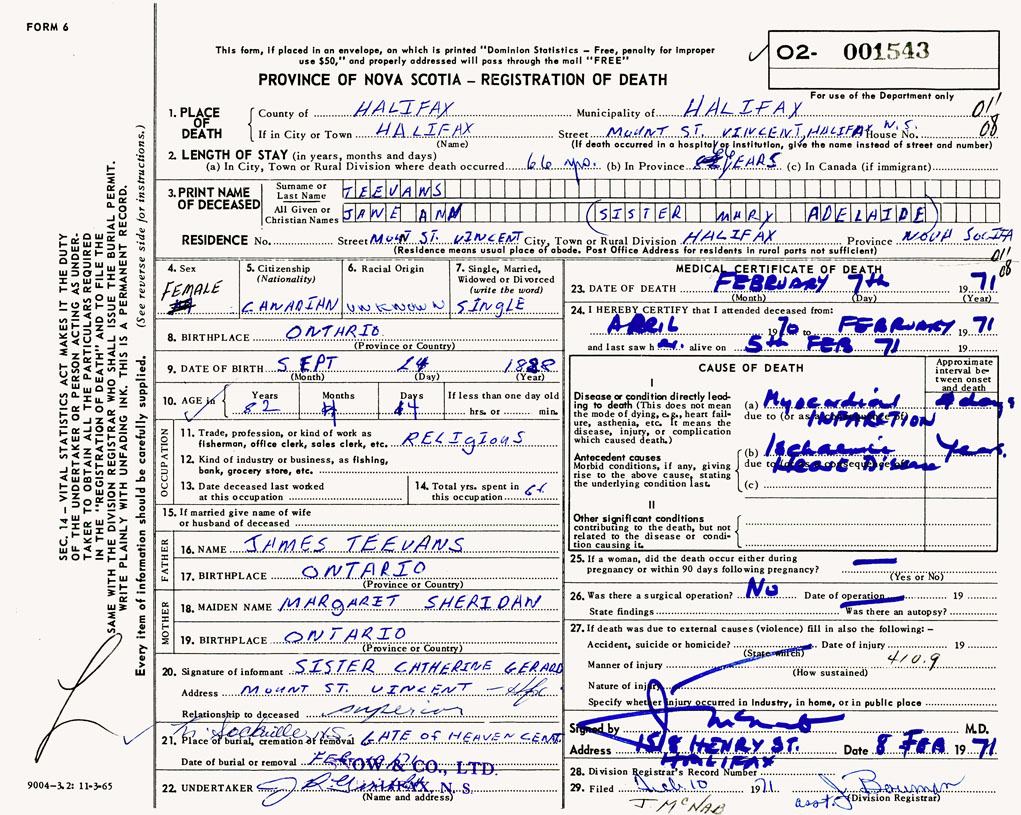 FORM 6
This form, if placed in an envelope, on which is printed "Dominion Statistics – Free, penalty for improper
use $50," and properly addressed will pass through the mail "FREE"
PROVINCE OF NOVA SCOTIA – REGISTRATION OF DEATH
02- 001543
For use of the Department only
011
08
1. PLACE OF DEATH
County of HALIFAX Municipality of HALIFAX
If in City or Town HALIFAX Street MOUNT ST. VINCENT, HALIFAX N.S. House No.
(Name) (If death occurred in a hospital or institution, give the name instead of street and number)
2. LENGTH OF STAY (in years, months and days)
(a) In City, Town or Rural Division where death occurred 66 yrs. (b) In Province 66 YEARS (c) In Canada (if immigrant)
3. PRINT NAME OF DECEASED
Surname or Last Name TEEVANS
All Given or Christian Names JANE ANN (SISTER MARY ADELAIDE)
RESIDENCE No. Street MOUNT ST. VINCENT City, Town or Rural Division HALIFAX Province NOVA SCOTIA
(Residence means usual place of abode. Post Office Address for residents in rural parts not sufficient)
011
08
4. Sex FEMALE
5. Citizenship (Nationality) CANADIAN
6. Racial Origin UNKNOWN
7. Single, Married, Widowed or Divorced (write the word) SINGLE
8. BIRTHPLACE ONTARIO
(Province or Country)
9. DATE OF BIRTH SEPT 24 1888
(Month) (Day) (Year)
10. AGE in Years 82 Months 4 Days 14 If less than one day old hrs. or min.
OCCUPATION
11. Trade, profession, or kind of work as fisherman, office clerk, sales clerk, etc. RELIGIOUS
12. Kind of industry or business, as fishing, bank, grocery store, etc.
13. Date deceased last worked at this occupation
14. Total yrs. spent in this occupation 66
15. If married give name of wife or husband of deceased
FATHER
16. NAME JAMES TEEVANS
17. BIRTHPLACE ONTARIO
(Province or Country)
MOTHER
18. MAIDEN NAME MARGARET SHERIDAN
19. BIRTHPLACE ONTARIO
(Province or Country)
20. Signature of informant SISTER CATHERINE GERARD
Address MOUNT ST. VINCENT – Hfx
Relationship to deceased superior
Sackville N.S.
21. Place of burial, cremation or removal GATE OF HEAVEN CEMT.
Date of burial or removal
SNOW & CO., LTD.
HALIFAX, N. S.
22. UNDERTAKER
(Name and address)
MEDICAL CERTIFICATE OF DEATH
23. DATE OF DEATH FEBRUARY 7th 1971
(Month) (Day) (Year)
24. I HEREBY CERTIFY that I attended deceased from:
APRIL 1970 to FEBRUARY 1971
and last saw her alive on 5th FEB 71 19
CAUSE OF DEATH
Approximate interval between onset and death
I
Disease or condition directly leading to death (This does not mean the mode of dying, e.g., heart failure, asthenia, etc. It means the disease, injury, or complication which caused death.)
(a) Myocardial INFARCTION days
due to (or as a consequence of)
Antecedent causes
Morbid conditions, if any, giving rise to the above cause, stating the underlying condition last.
(b) Ischaemic Heart Disease Years.
due to (or as a consequence of)
(c)
II
Other significant conditions contributing to the death, but not related to the disease or condition causing it.
25. If a woman, did the death occur either during pregnancy or within 90 days following pregnancy? —
(Yes or No)
26. Was there a surgical operation? No Date of operation — 19
State findings Was there an autopsy?
27. If death was due to external causes (violence) fill in also the following: –
Accident, suicide or homicide? Date of injury 19
(State which) 410.9
Manner of injury
(How sustained)
Nature of injury
Specify whether injury occurred in industry, in home, or in public place
Signed by M.D.
Address 1518 HENRY ST. HALIFAX Date 8 FEB 1971
28. Division Registrar's Record Number
29. Filed Feb. 10 1971 asst. J. Bauman
(Division Registrar)
J. McNAB
SEC. 14 – VITAL STATISTICS ACT MAKES IT THE DUTY
OF THE UNDERTAKER OR PERSON ACTING AS UNDER-
TAKER TO OBTAIN ALL THE PARTICULARS REQUIRED
IN THE "REGISTRATION OF DEATH" AND TO FILE THE
SAME WITH THE DIVISION REGISTRAR WHO SHALL ISSUE THE BURIAL PERMIT.
WRITE PLAINLY WITH UNFADING INK. THIS IS A PERMANENT RECORD.
Every item of information should be carefully supplied. (See reverse side for instructions.)
9004-3.2: 11-3-65